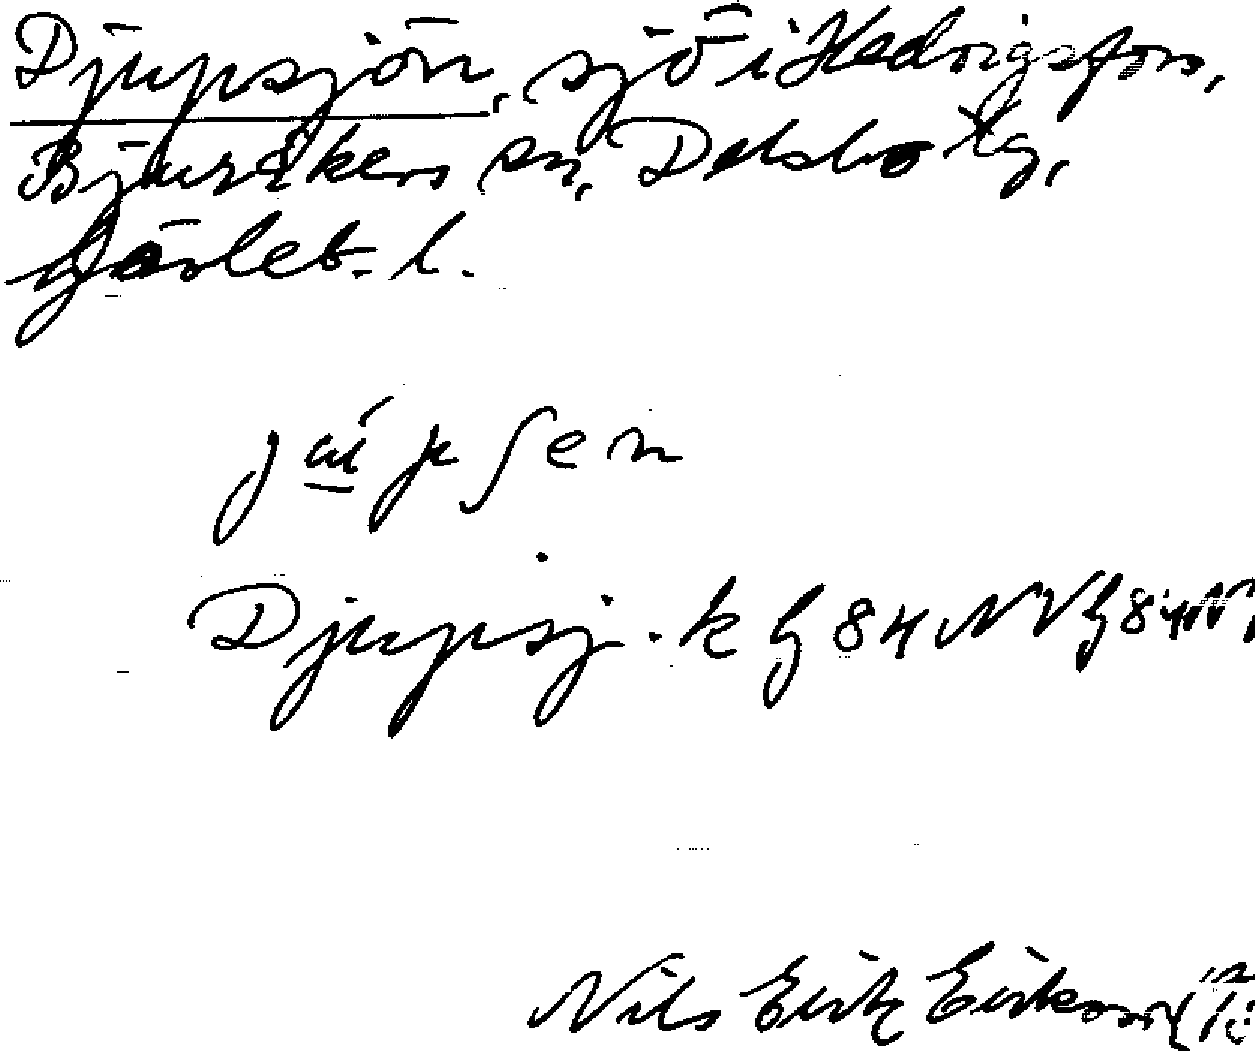 Djupsjön, sjö i Hedvigsfors,
Bjuråkers sn, Delsbo tg,
Gävleb. l.
Djupsj. k G 84 NV G 84 NV
Nils Erik Eriksson